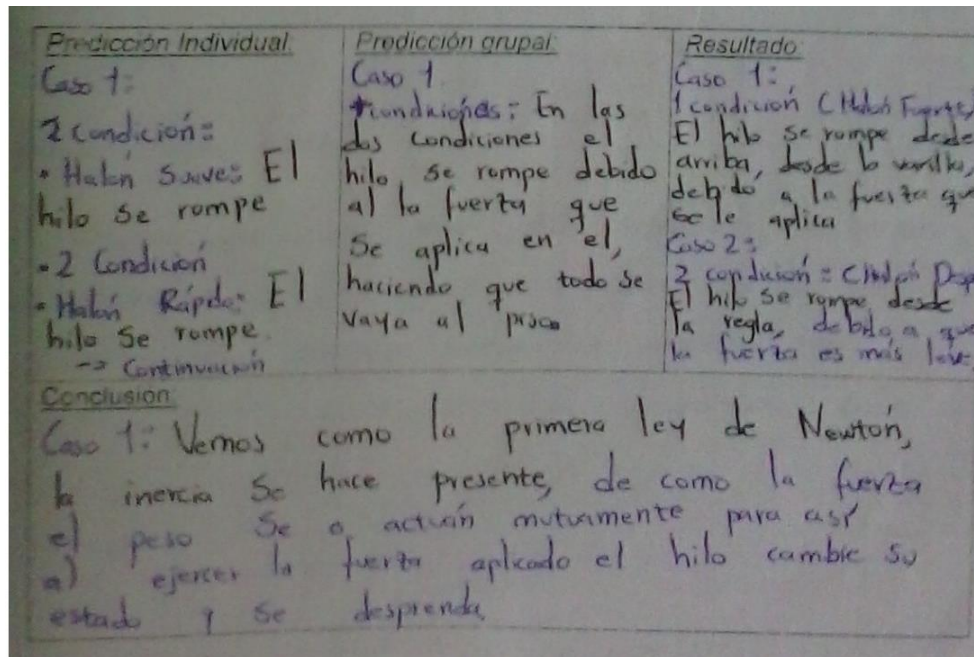 Predicción Individual:
Caso 1:
2 condición:
• Halón Suave: El
hilo se rompe
• 2 Condición
• Halón Rápido: El
hilo se rompe.
-> Continuación
Predicción grupal:
Caso 1.
condiciones: En las
dos condiciones el
hilo se rompe debido
al la fuerza que
se aplica en el,
haciendo que todo se
vaya al piso
Resultado:
Caso 1:
1 condición (Halón Fuerte)
El hilo se rompe desde
arriba, desde la varilla,
debido a la fuerza que
se le aplica
Caso 2:
2 condición = (Halón Desp
El hilo se rompe desde
la regla, debido a que
la fuerza es más leve
Conclusion:
Caso 1: Vemos como la primera ley de Newtón,
la inercia se hace presente, de como la fuerza
el peso se o actúan mutuamente para así
al ejercer la fuerza aplicado el hilo cambie su
estado y se desprenda